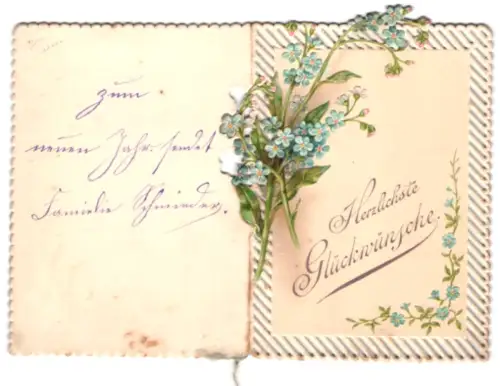 zum
neuen Jahr sendet
Familie Schnieder.
Herzlichste
Glückwünsche.